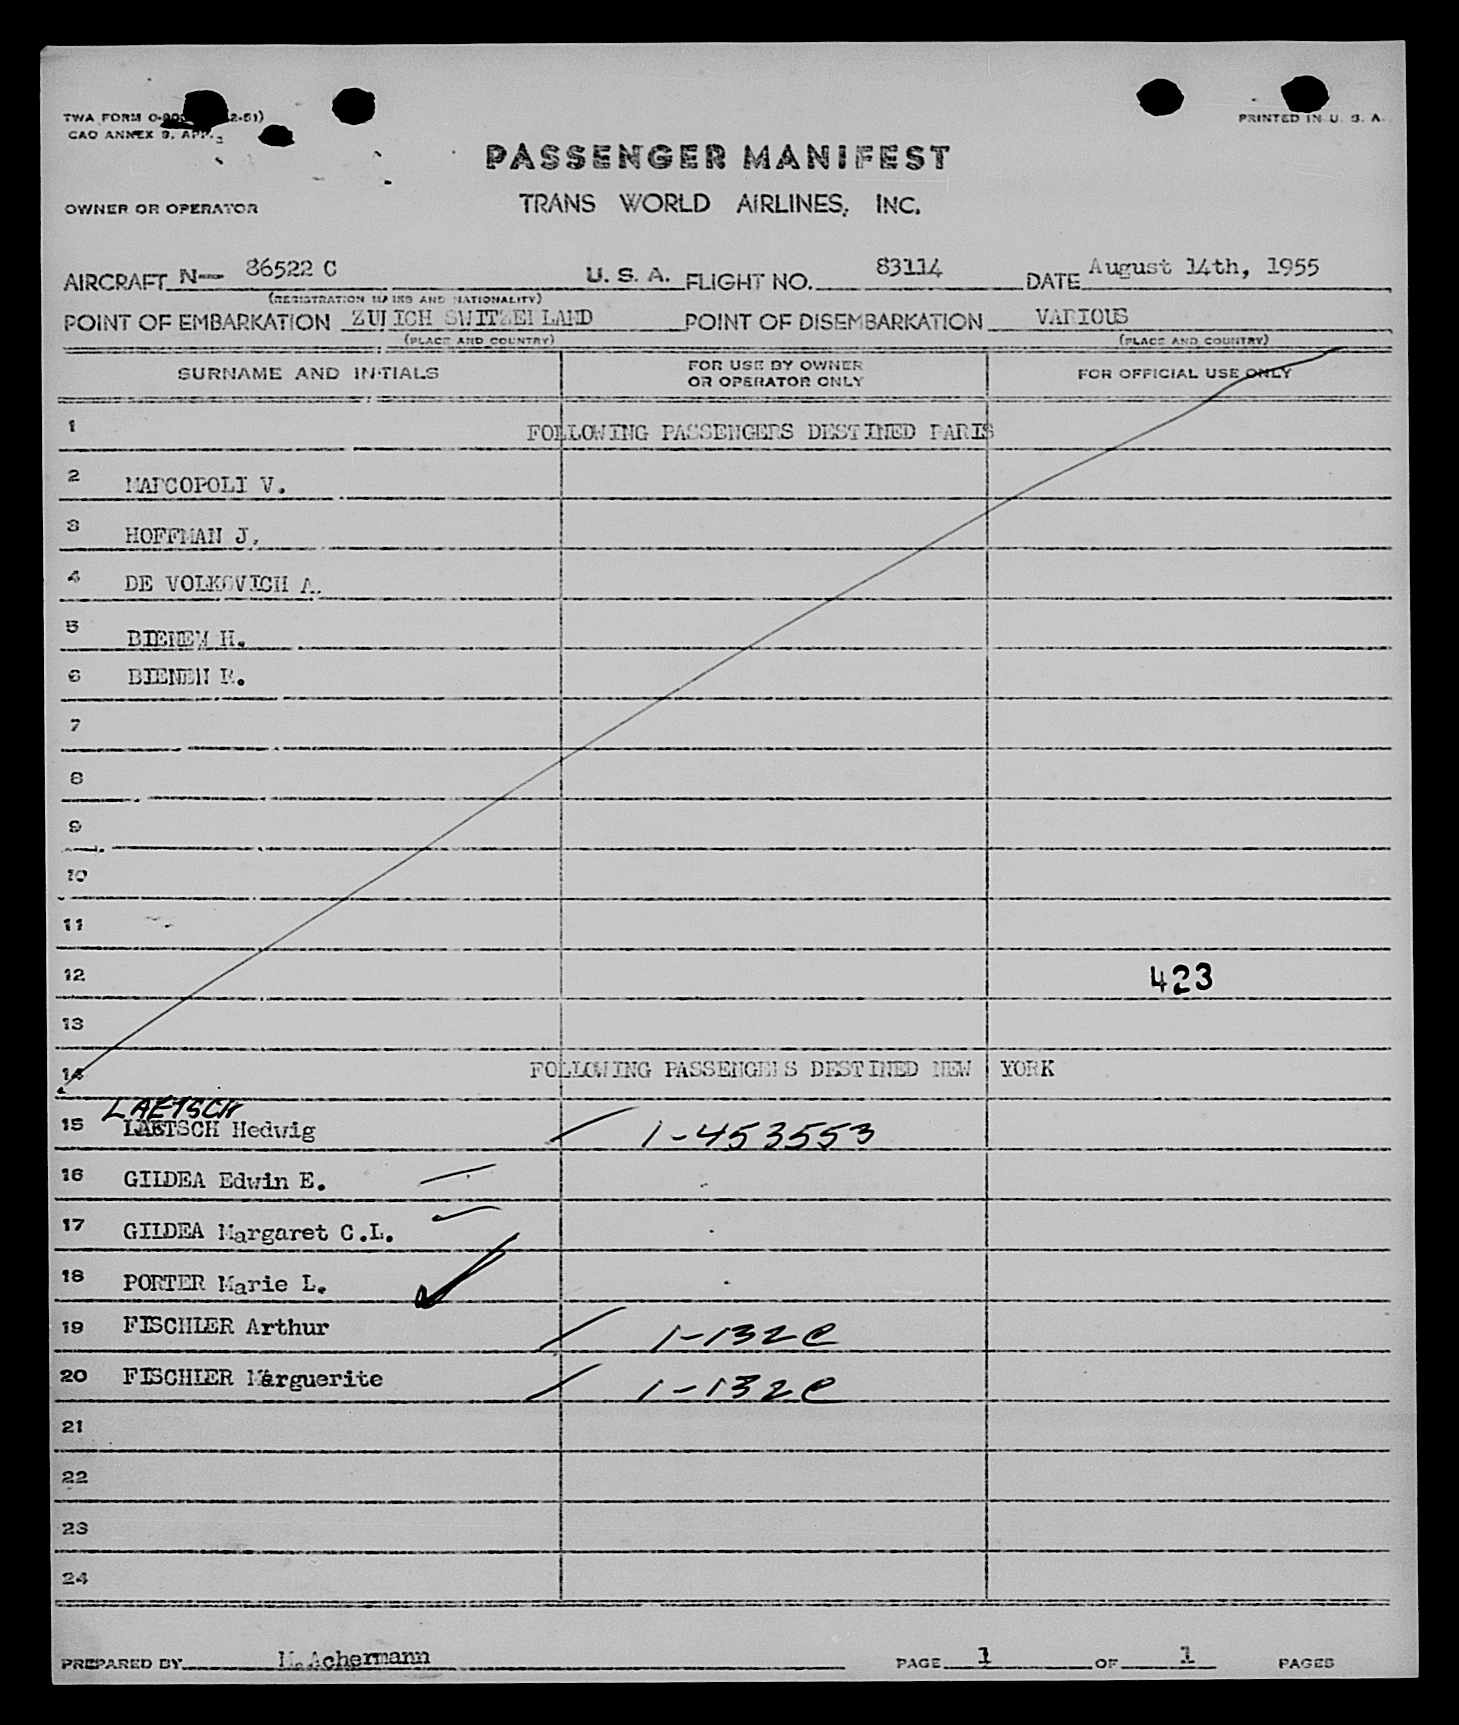 TWA FORM O-
PRINTED IN U. S. A.
CAO ANNEX 9, APP.
PASSENGER MANIFEST
OWNER OR OPERATOR
TRANS WORLD AIRLINES, INC.
AIRCRAFT N— 86522 C U. S. A. FLIGHT NO. 83114 DATE August 14th, 1955
(REGISTRATION MARKS AND NATIONALITY)
POINT OF EMBARKATION ZURICH SWITZERLAND POINT OF DISEMBARKATION VARIOUS
(PLACE AND COUNTRY) (PLACE AND COUNTRY)
SURNAME AND INITIALS FOR USE BY OWNER OR OPERATOR ONLY FOR OFFICIAL USE ONLY
1 FOLLOWING PASSENGERS DESTINED PARIS
2 MARCOPOLI V.
3 HOFFMAN J.
4 DE VOLKOVICH A.
5 BIENEN H.
6 BIENEN R.
7
8
9
10
11
12 423
13
14 FOLLOWING PASSENGERS DESTINED NEW YORK
LAETSCH
15 LAETSCH Hedwig 1-453553
16 GILDEA Edwin E.
17 GILDEA Margaret C.L.
18 PORTER Marie L.
19 FISCHLER Arthur 1-132e
20 FISCHLER Marguerite 1-132e
21
22
23
24
PREPARED BY M. Achermann PAGE 1 OF 1 PAGES